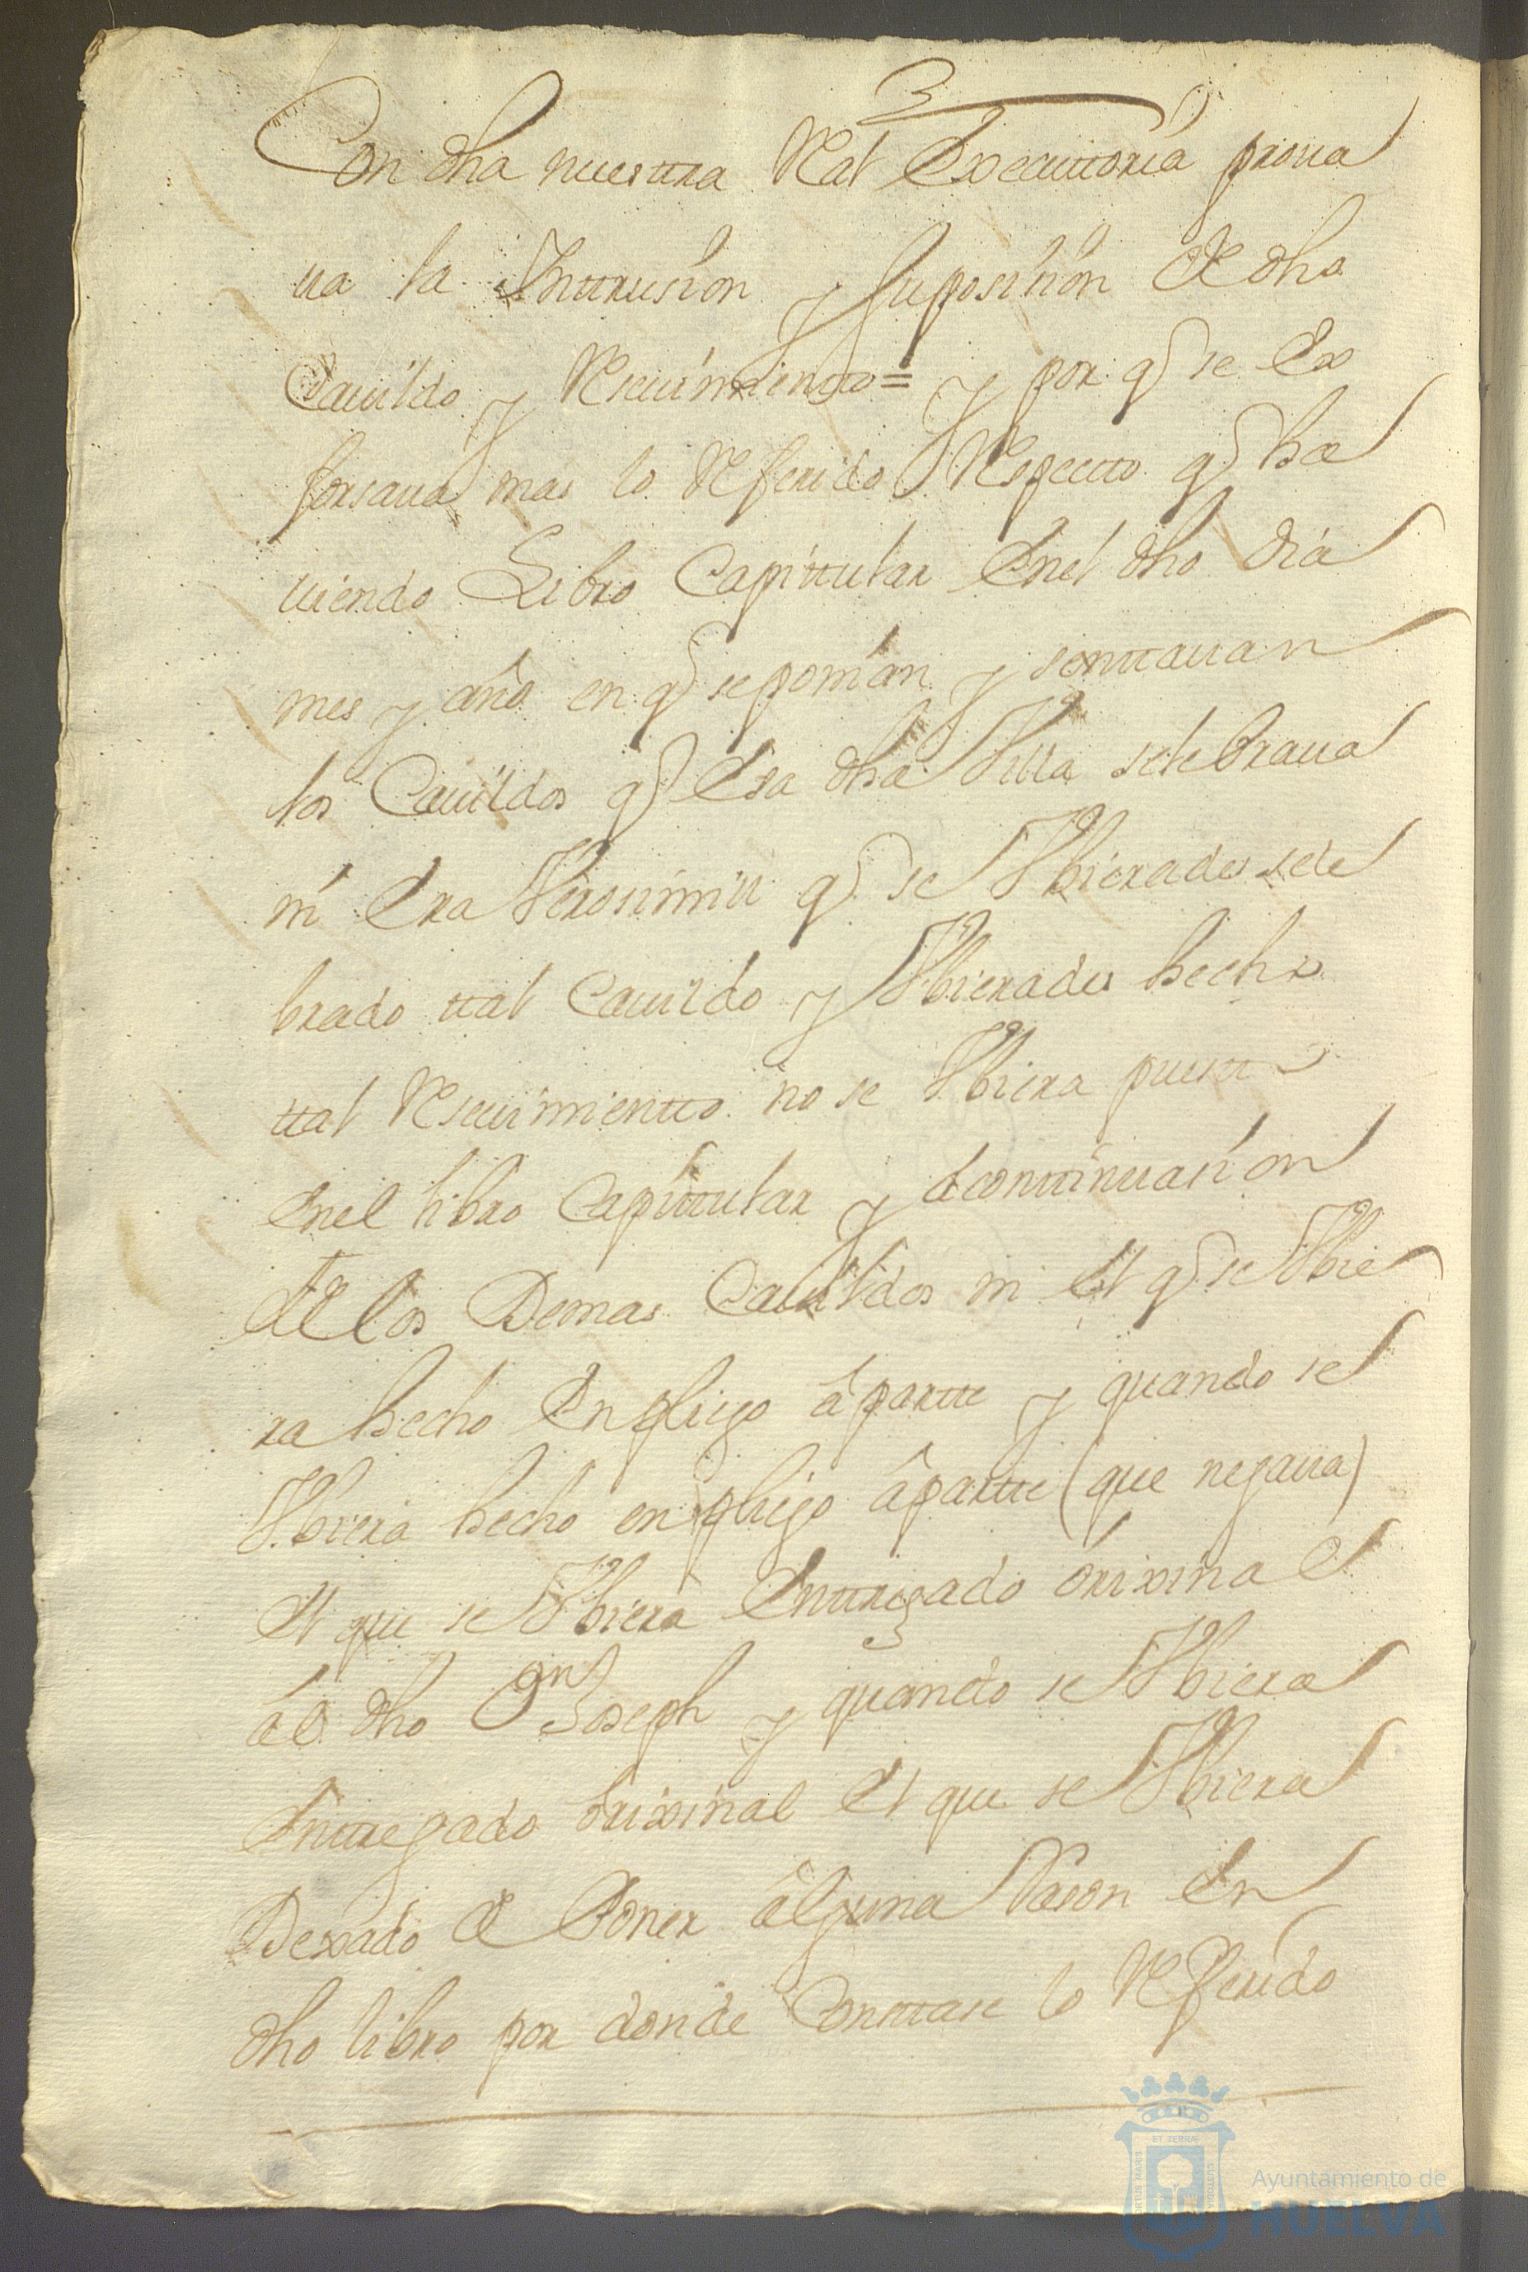 Con dha nuestra Real Executtoria prova
va la Inttrusion y suposision de dha
Cavildo y Resevimientto = y por q se Ex
forsava mas lo Referido Respectto q ha
viendo Libro Capittular En el dho dia
mes y año en q se ponian y senttavan
los Cavildos q Esa dha Villa selebrava
ni Era Verosimil q se Vbierades sele
brado ttal Cavildo y Vbierades hecho
ttal Resevimientto no se Vbiera puestto
En el libro Capittular y a conttinuasion
de los Demas Cavildos ni El q se Vbie
ra hecho En pliego ápartte y quando se
Vbiera hecho en pliego ápartte (que negava)
El que se Vbiera Enttregado orixinal
ál dho Dn Joseph y quando se Vbiera
Enttregado orixinal El que se Vbiera
Dexado de Poner alguna Rason En
dho libro por donde Consttase lo Referido
Ayuntamiento de
HUELVA